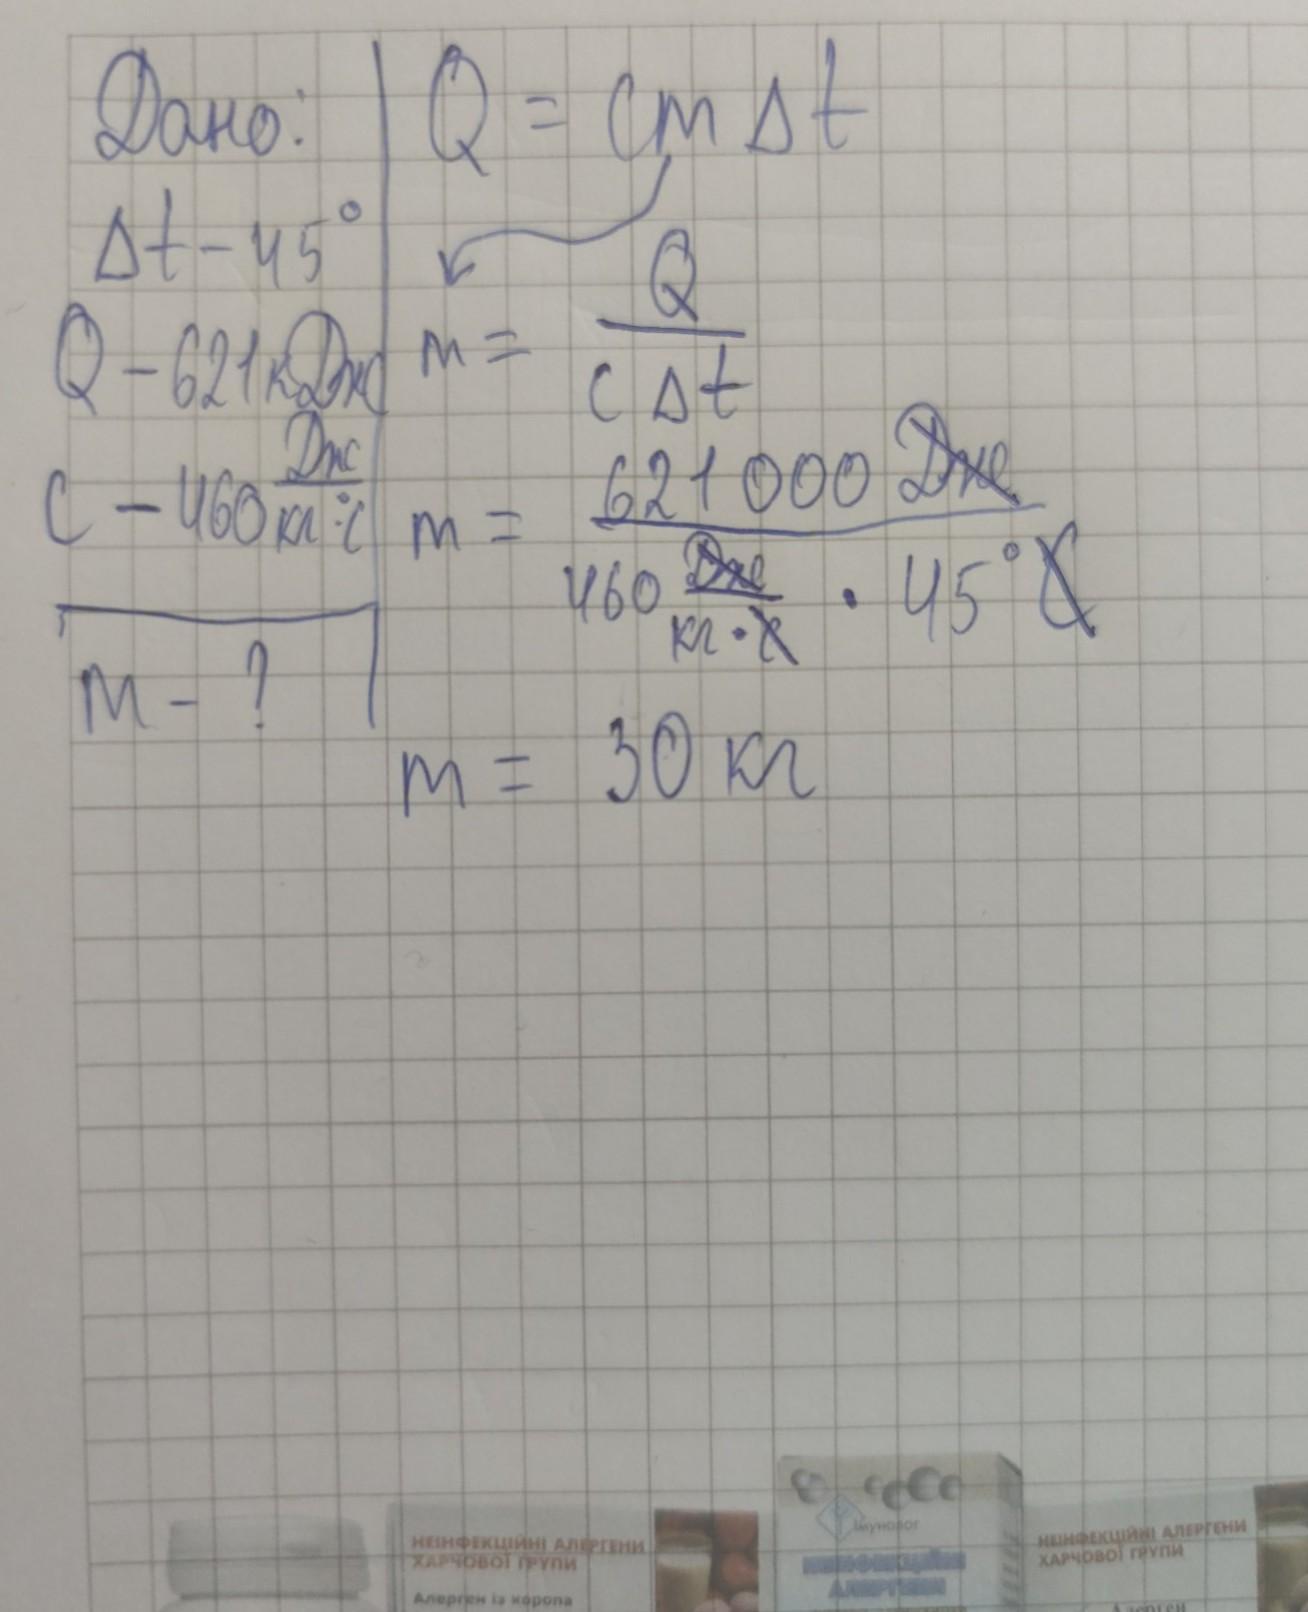 Дано:
Δt - 45°
Q - 621 кДж
c - 460 Дж/кг·°C
m - ?
Q = cmΔt
m = Q/cΔt
m = 621 000 Дж / 460 Дж/кг·°C · 45°C
m = 30 кг
Імунолог
НЕІНФЕКЦІЙНІ АЛЕРГЕНИ
ХАРЧОВОЇ ГРУПИ
Алерген із коропа
НЕІНФЕКЦІЙНІ
АЛЕРГЕНИ
НЕІНФЕКЦІЙНІ АЛЕРГЕНИ
ХАРЧОВОЇ ГРУПИ
Алерген